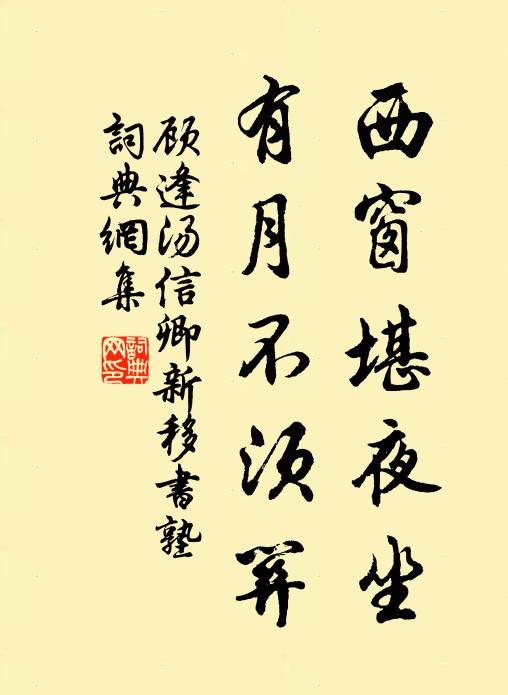 西窗堪夜坐
有月不须关
顾逢汤信卿新移書塾
詞典網集
詞典
网印